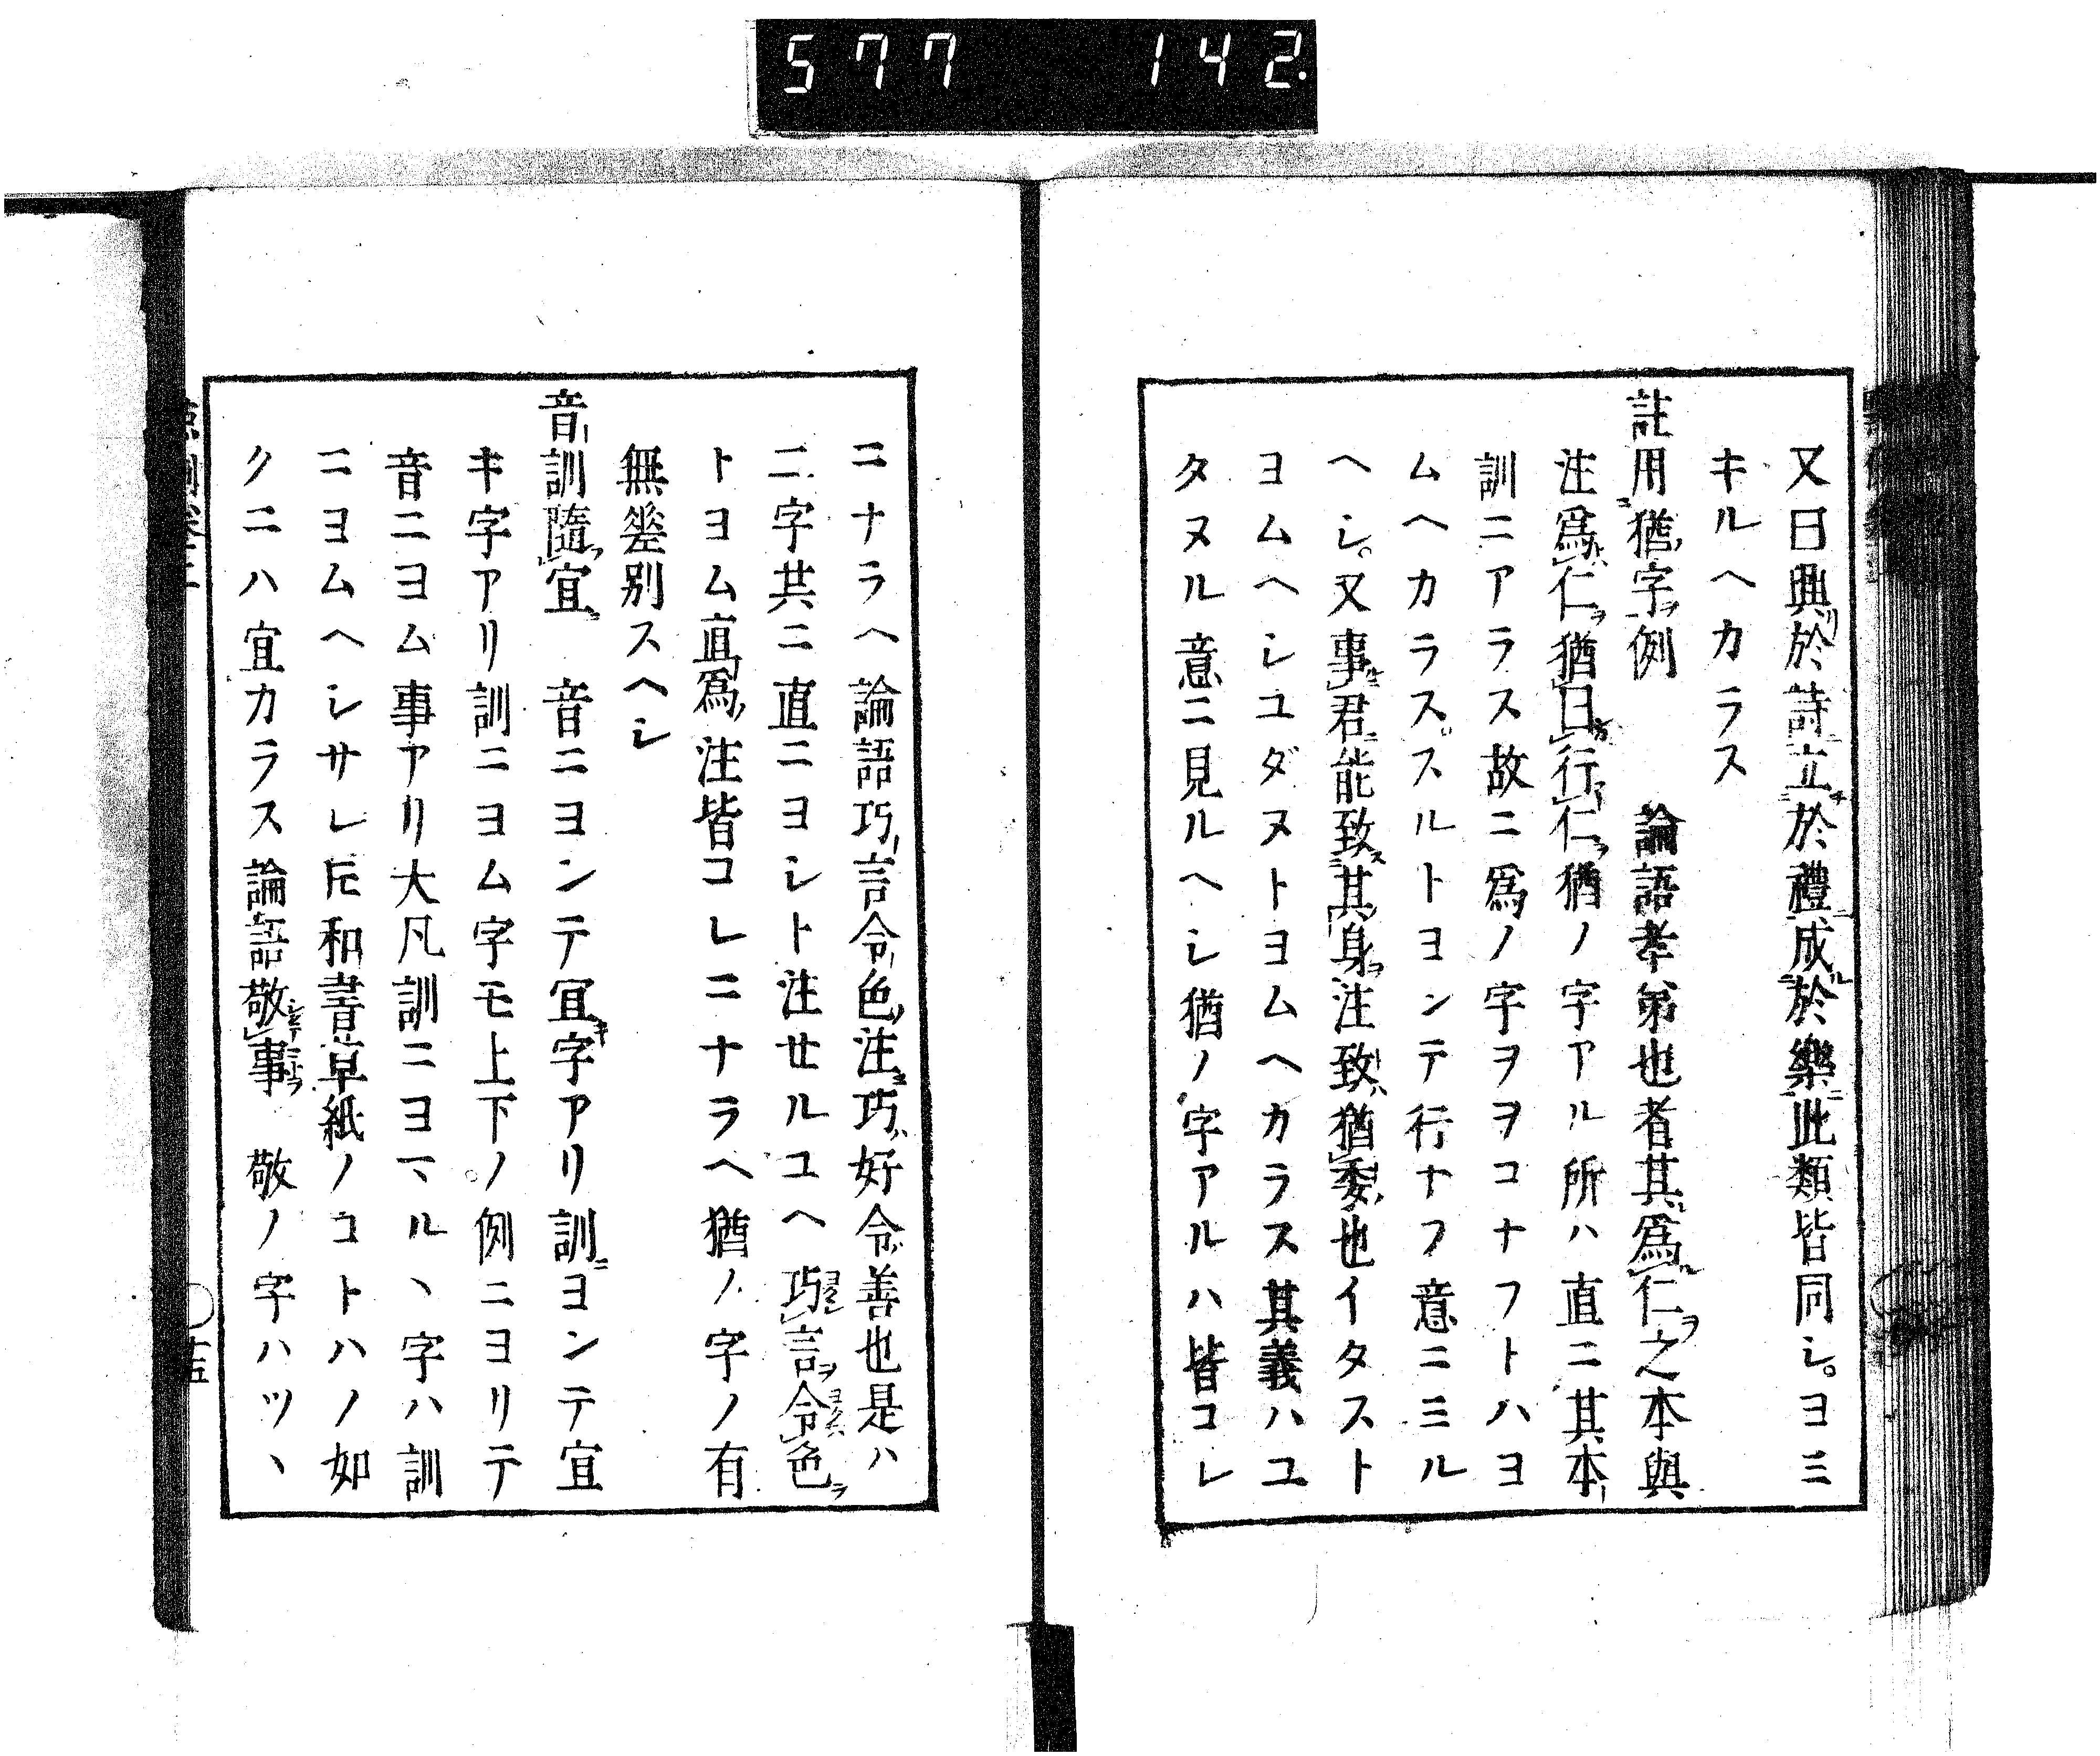 577 142.
又曰興於詩立於禮成於樂此類皆同シ。ヨミ
キルヘカラス
註用猶字例 論語孝弟也者其爲仁之本與
注爲仁猶曰行仁猶ノ字アル所ハ直ニ其本
訓ニアラス故ニ爲ノ字ヲヲコナフトハヨ
ムヘカラス。スルトヨンテ行ナフ意ニミル
ヘシ。又事君能致其身注致猶委也イタスト
ヨムヘシユダヌトヨムヘカラス其義ハユ
タヌル意ニ見ルヘシ猶ノ字アルハ皆コレ
ニナラヘ論語巧言令色注巧好令善也是ハ
二字共ニ直ニヨシト注セルユヘ巧言令色
トヨム直爲注皆コレニナラヘ猶ノ字ノ有
無差別スヘシ
音訓隨宜 音ニヨンテ宜字アリ訓ニヨンテ宜
キ字アリ訓ニヨム字モ上下ノ例ニヨリテ
音ニヨム事アリ大凡訓ニヨマルヽ字ハ訓
ニヨムヘシサレ𪜈和書草紙ノコトハノ如
クニハ宜カラス論語敬事 敬ノ字ハツヽ